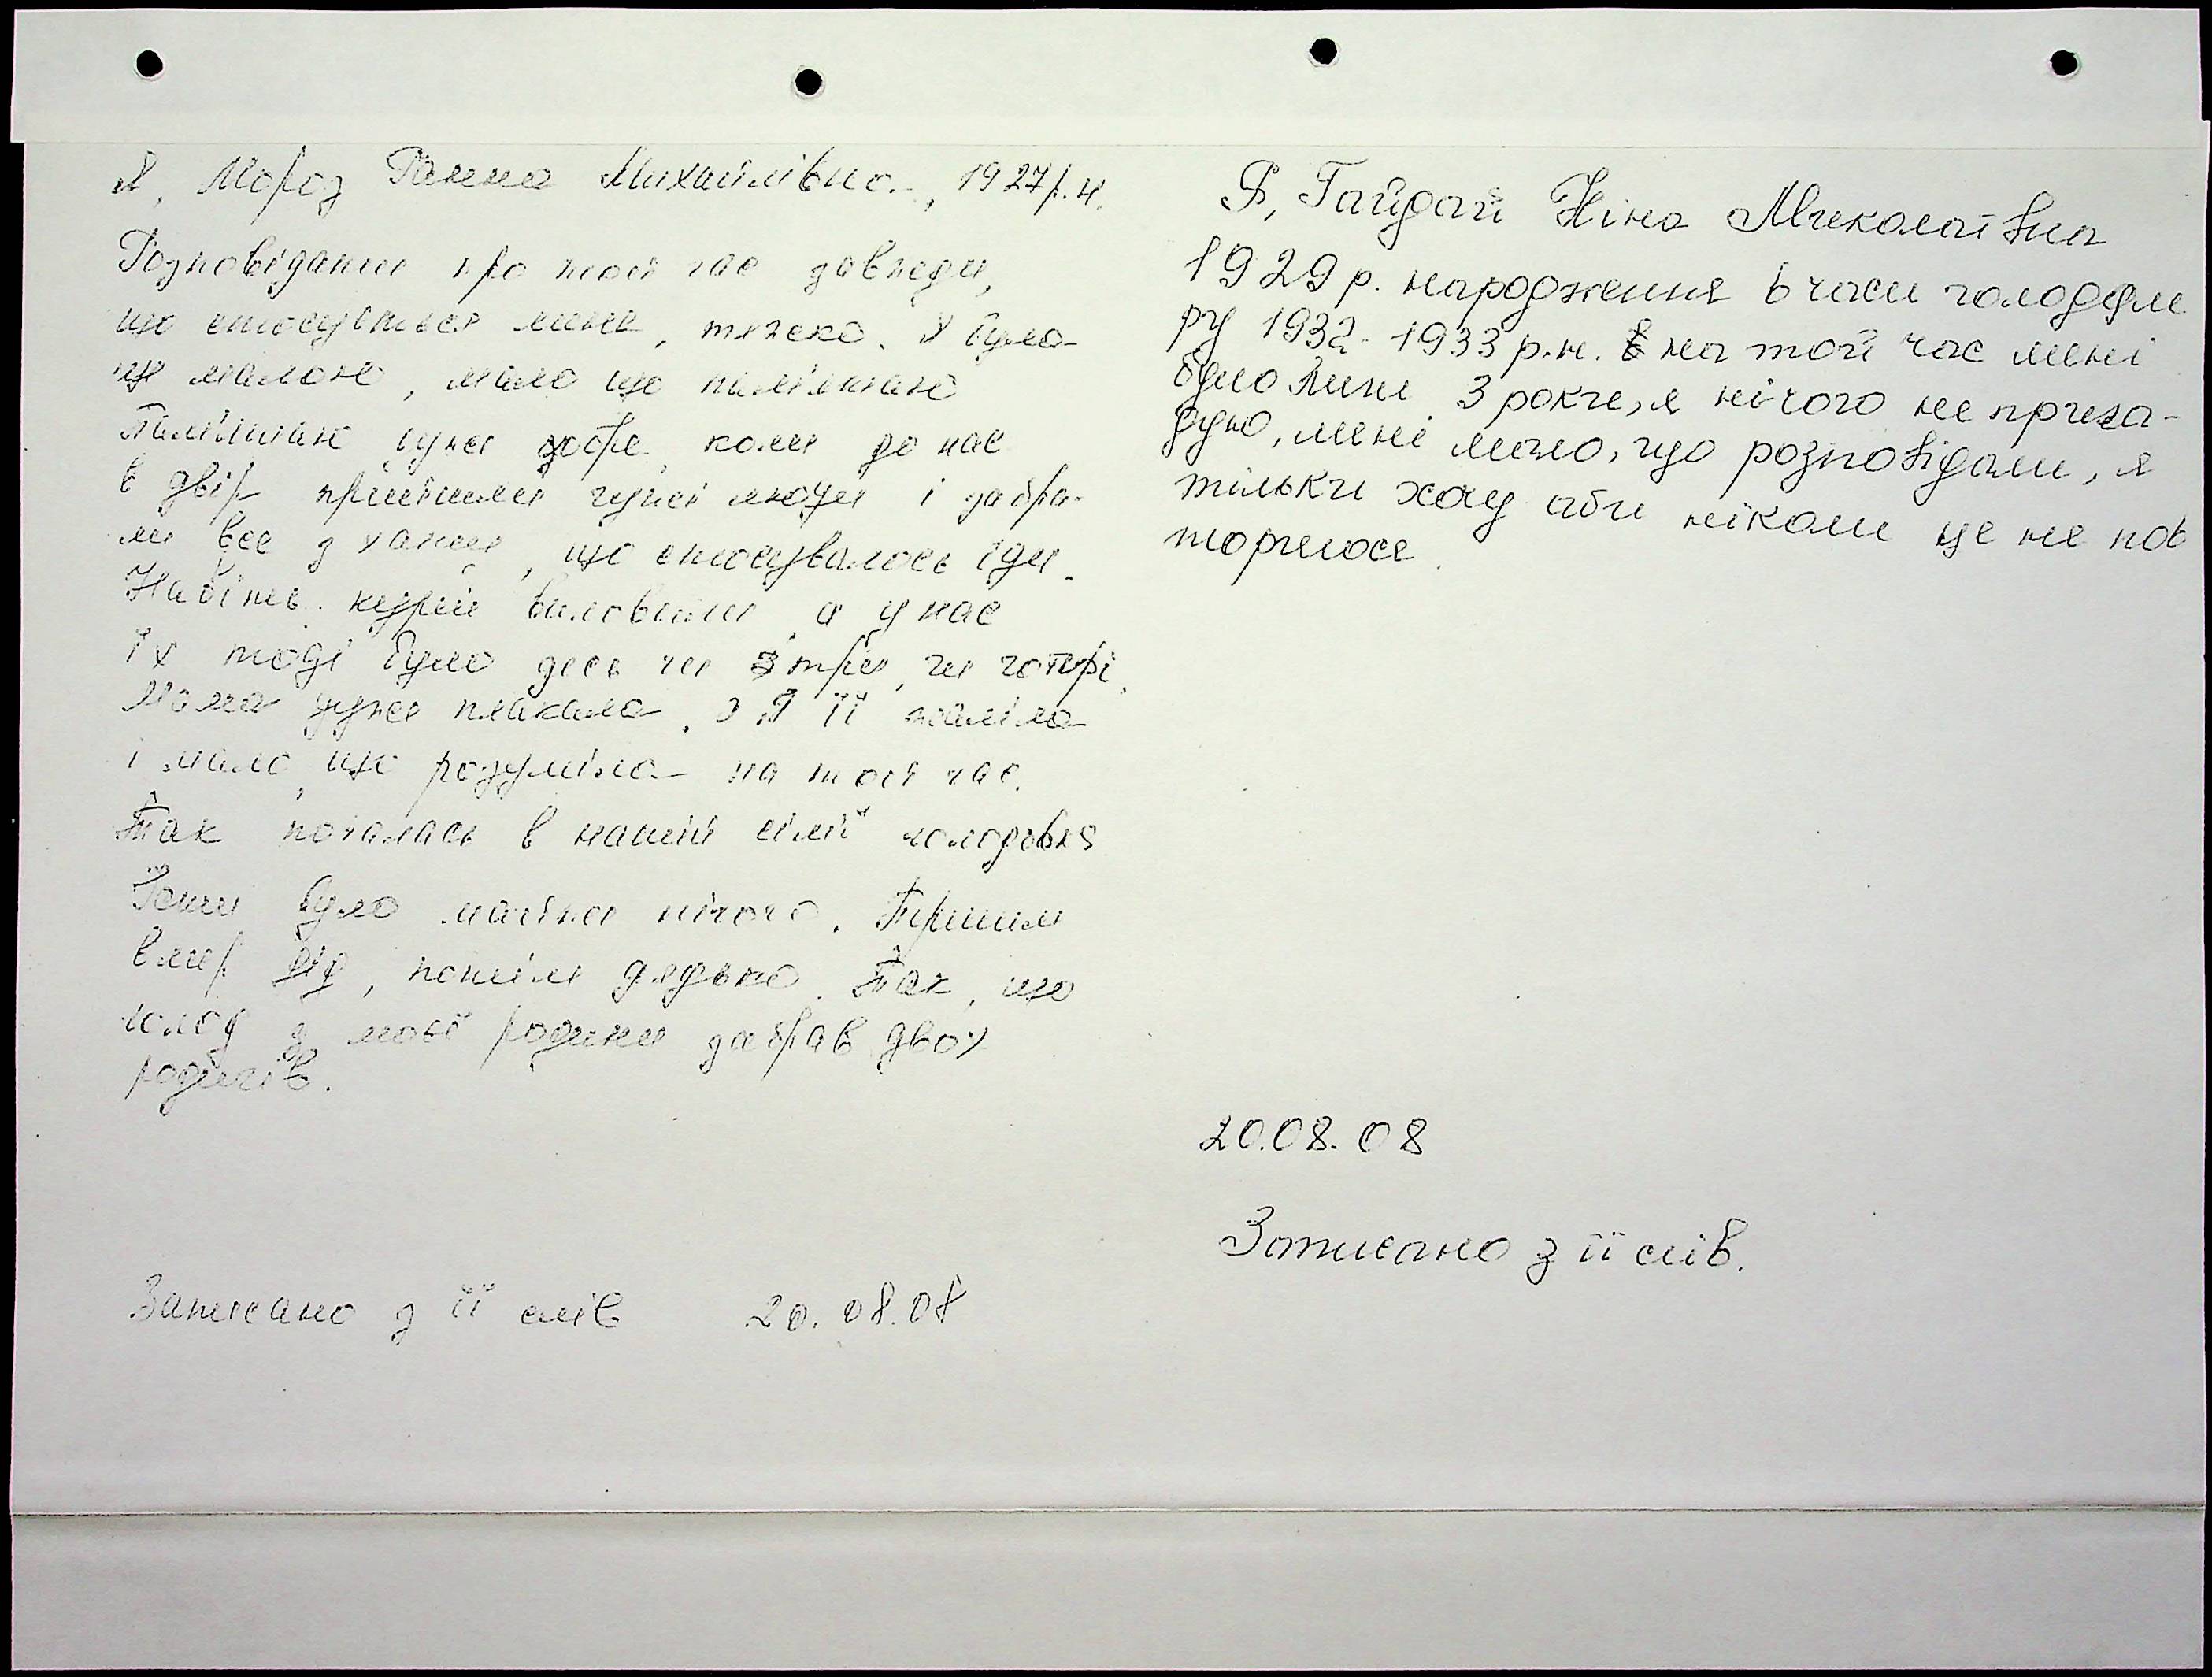 Я, Мороз Ганна Михайлівна, 1927 р.н.
Розповідати про той час завжди,
що стосується мене, тяжко. Я була
ще малою, мало що пам'ятаю
Пам'ятаю дуже добре, коли до нас
в двір прийшли чужі люди і забра-
ли все з хати, що стосувалось їди.
Навіть курей виловили, а у нас
їх тоді було десь чи три, чи чотирі.
Мама дуже плакала, а я її жаліла
і мало, що розуміла на той час.
Так почалась в нашій сім'ї голодовка
Їсти було майже нічого. Першим
вмер дід, потім дядько. Так, що
голод з моєї родини забрав двох
родичів.
Записано з її слів 20.08.08
Я, Гайдай Ніна Миколаївна
1929 р. народження в часи голодомо
ру 1932-1933 р.н. на той час мені
було лише 3 роки, я нічого не прига-
дую, мені мало, що розповідали, я
тільки хочу аби ніколи це не пов
торилося.
20.08.08
Записано з її слів.